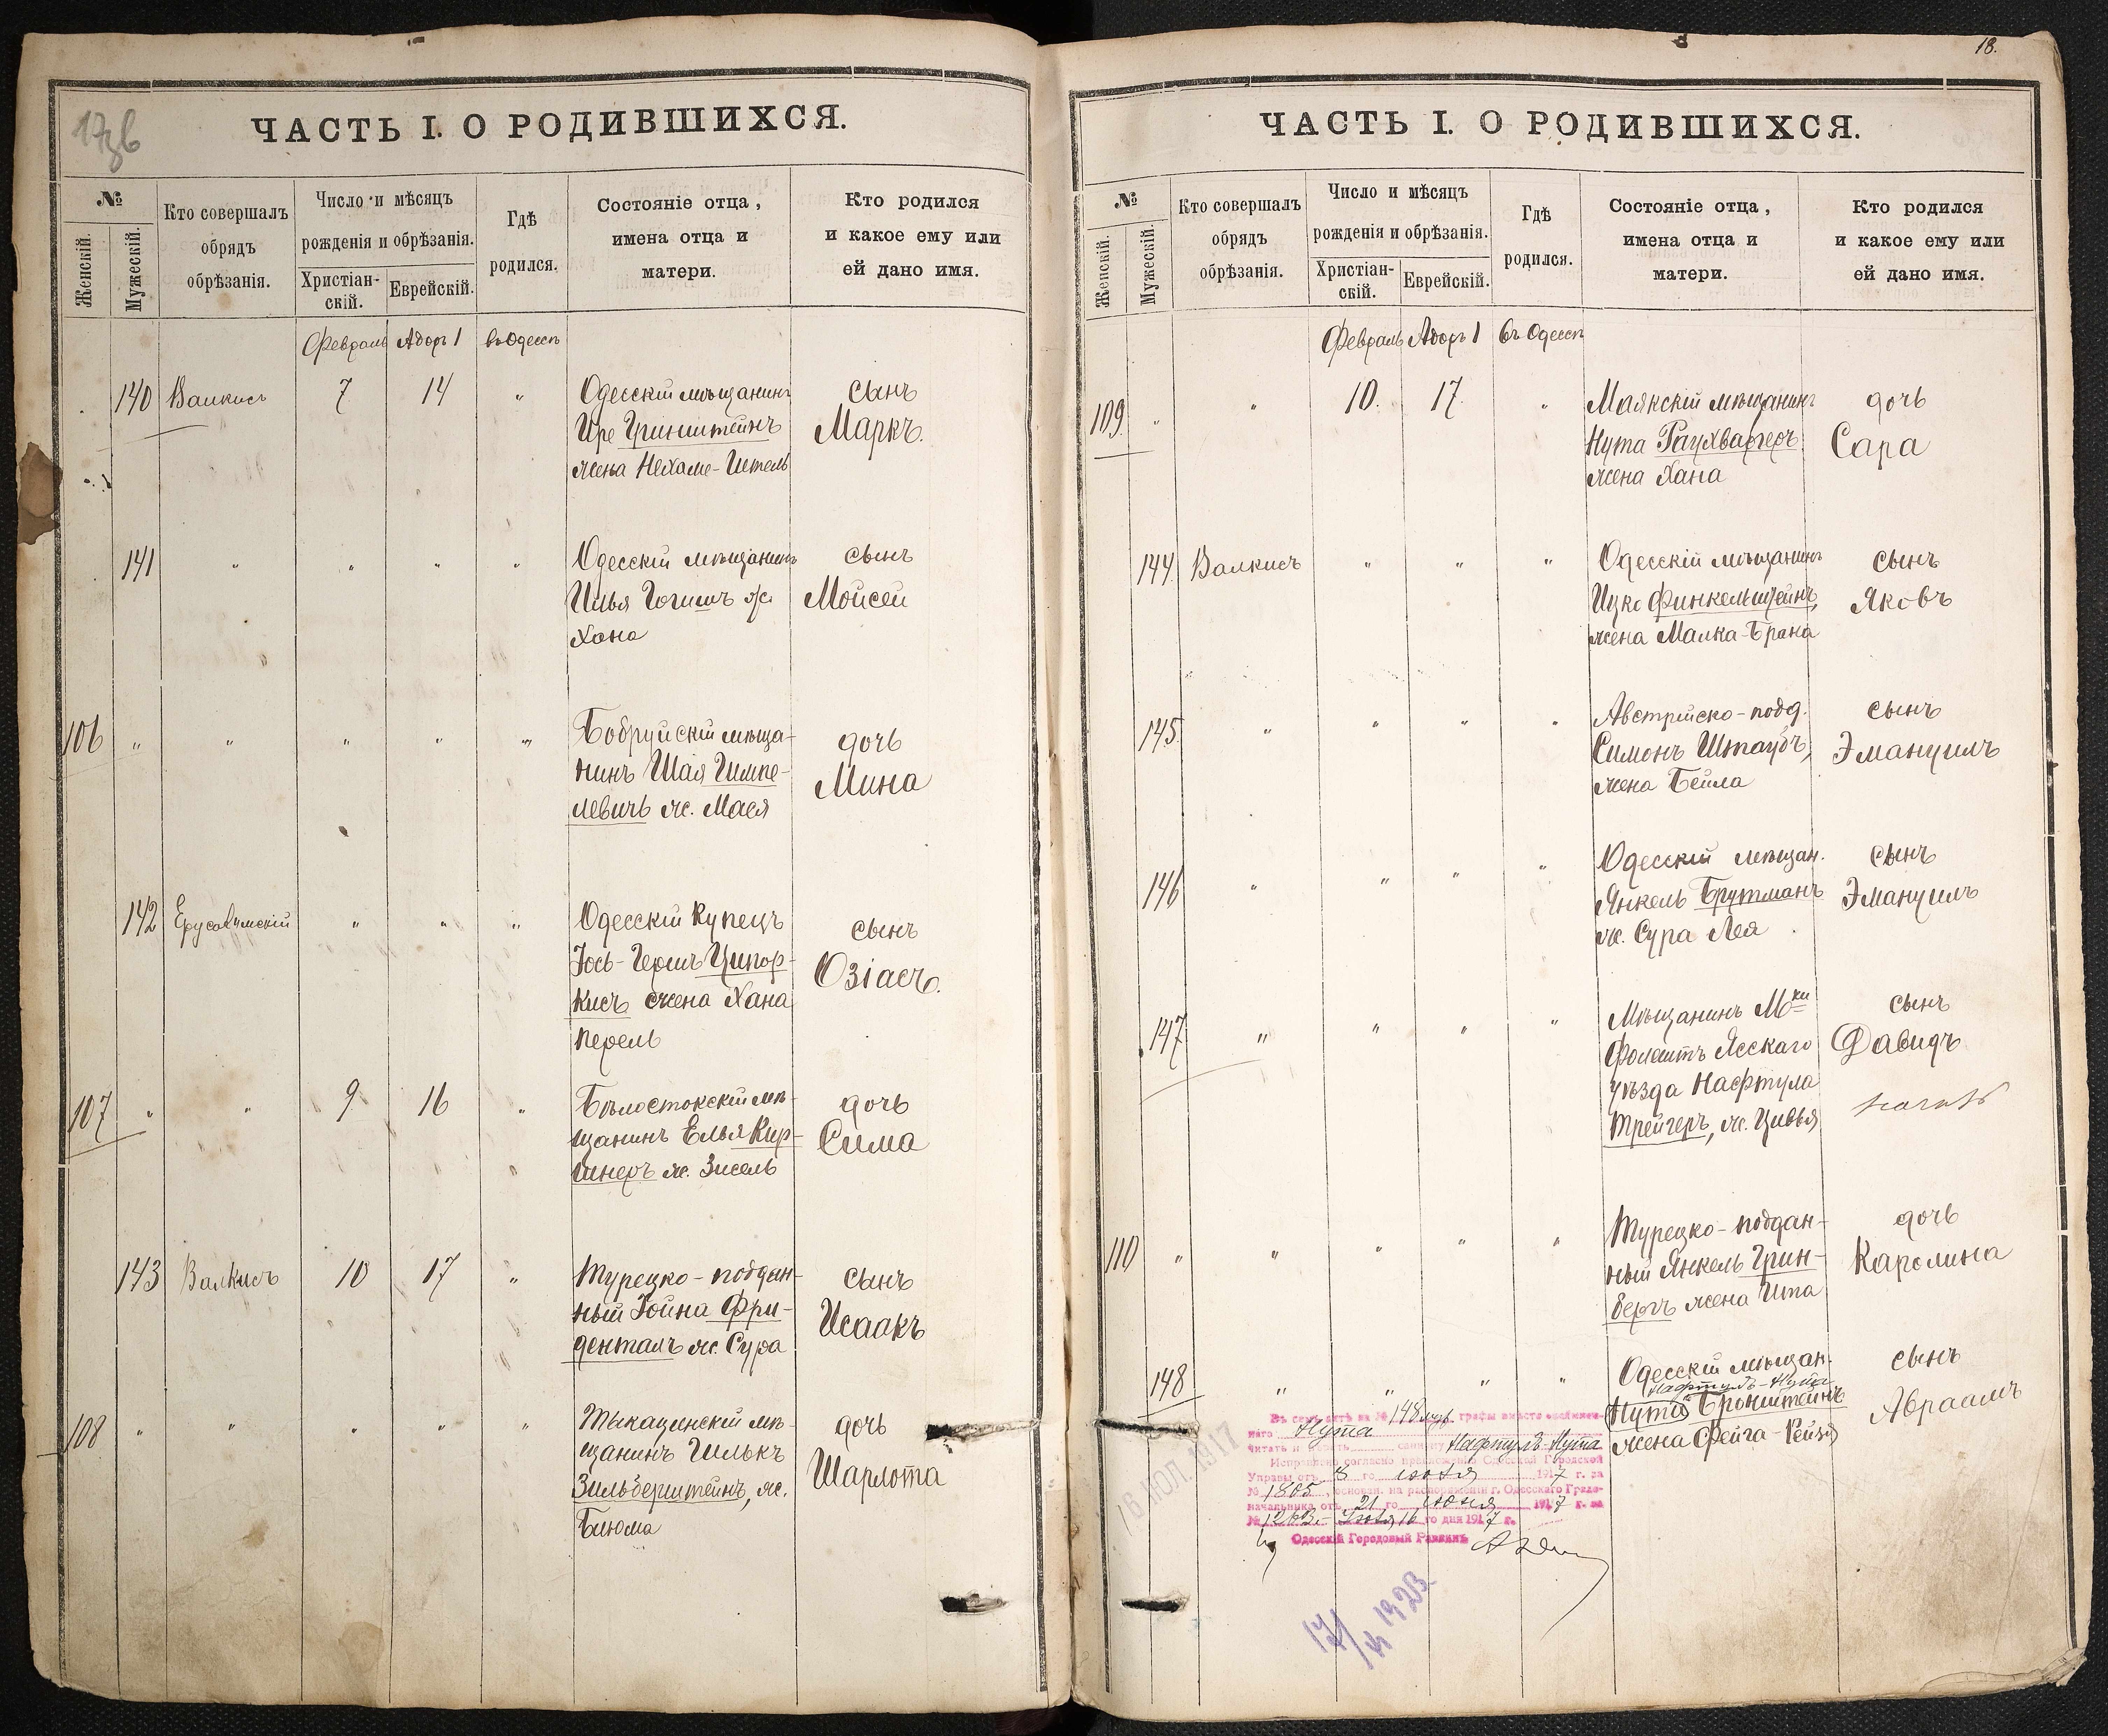 17зв
ЧАСТЬ I. О РОДИВШИХСЯ.
№
Женскій.
Мужескій.
Кто совершалъ
обрядъ
обрѣзанія.
Число и мѣсяцъ
рожденія и обрѣзанія.
Христіан-
скій.
Еврейскій.
Гдѣ
родился.
Состояніе отца,
имена отца и
матери.
Кто родился
и какое ему или
ей дано имя.
Февраль Адоръ 1 въ Одессѣ
140 Валкисъ 7 14 " Одесскій мѣщанинъ сынъ
Ире Гринштейнъ Маркъ.
жена Нехаме-Ителъ
141 " " " " Одесскій мѣщанинъ сынъ
Илья ж. Мойсей
Хана
106 " " " " " Бобруйскій мѣща- дочь
нинъ Шая Гимпе- Мина
левичъ ж. Мася
142 Ерусалимскій " " " Одесскій купецъ сынъ
Іось-Гершъ Ципор- Озіасъ.
кисъ жена Хана
Перель
107 " " 9 16 " Бѣлостокскій мѣ- дочь
щанинъ Елья Кир- Сима
жнеръ ж. Зисель
143 Валкисъ 10 17 " Турецко-поддан- сынъ
ный Іойна Фри- Исаакъ
денталъ ж. Сура
108 " " " " " Тыкацинскій мѣ- дочь
щанинъ Шарлота
Зильберштейнъ, ж.
Блюма
18.
ЧАСТЬ I. О РОДИВШИХСЯ.
№
Женскій.
Мужескій.
Кто совершалъ
обрядъ
обрѣзанія.
Число и мѣсяцъ
рожденія и обрѣзанія.
Христіан-
скій.
Еврейскій.
Гдѣ
родился.
Состояніе отца,
имена отца и
матери.
Кто родился
и какое ему или
ей дано имя.
Февраль Адоръ 1 въ Одессѣ
109. " " 10. 17. " Маякскій мѣщанинъ дочь
Нута Раухвергеръ Сара
жена Хана
144. Валкисъ " " " Одесскій мѣщанинъ сынъ
Ицко Финкельштейнъ, Яковъ
жена Малка-Брана
145. " " " " Австрійско-подд. сынъ
Симонъ Штаубъ, Эмануилъ
жена Бейла
146 " " " " Одесскій мѣщан. сынъ
Янкель Брутманъ Эмануилъ
ж. Сура Лея
147 " " " " Мѣщанинъ М-ки сынъ
Фолештъ Ясскаго Давидъ
уѣзда Нафтула
Трейгеръ, ж. Цивья
110 " " " " " Турецко-поддан- дочь
ный Янкель Грин- Каролина
бергъ жена Ита
148 " " " " Одесскій мѣщан. сынъ
Нафтулъ-Нута
Нута Бронштейнъ Авраамъ
жена Фейга-Рейзя
Въ семъ актѣ на № 148 муж. графы вмѣсто
Нута
читать и Нафтулъ-Нута
Исправлено согласно предложенію Одесской Городской
Управы отъ 8 го іюля 1917 г. за
№ 1805, основан. на распоряженіи г. Одесскаго Градо-
начальника отъ 21 го іюня 1917 г. за
№ 1263. - Іюля 16 го дня 1917 г.
Одесскій Городовый Раввинъ
16 ИЮЛ. 1917